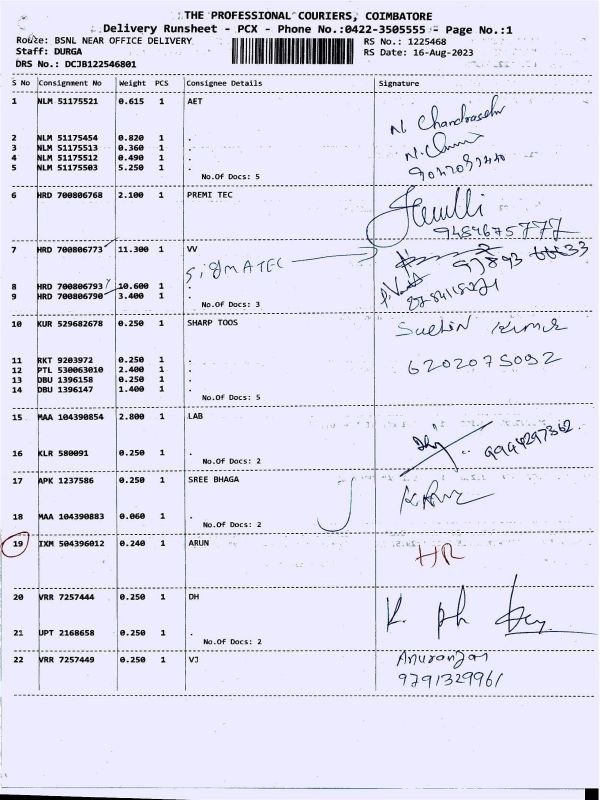 THE PROFESSIONAL COURIERS, COIMBATORE
Delivery Runsheet - PCX - Phone No.:0422-3505555 - Page No.:1
Route: BSNL NEAR OFFICE DELIVERY RS No.: 1225468
Staff: DURGA RS Date: 16-Aug-2023
DRS No.: DCJB122546801
S No Consignment No Weight PCS Consignee Details Signature
1 NLM 51175521 0.615 1 AET
N. Chandrasekar
2 NLM 51175454 0.820 1 .
3 NLM 51175513 0.360 1 .
4 NLM 51175512 0.490 1 .
5 NLM 51175503 5.250 1 .
No.Of Docs: 5
6 HRD 700806768 2.100 1 PREMI TEC
9486675777
7 HRD 700806773 11.300 1 VV
SIGMATEC
8 HRD 700806793 10.600 1 .
9 HRD 700806790 3.400 1 .
No.Of Docs: 3
10 KUR 529682678 0.250 1 SHARP TOOS
11 RKT 9203972 0.250 1 .
6202075092
12 PTL 530063010 2.400 1 .
13 DBU 1396158 0.250 1 .
14 DBU 1396147 1.400 1 .
No.Of Docs: 5
15 MAA 104390854 2.800 1 LAB
9994297362
16 KLR 580091 0.250 1 .
No.Of Docs: 2
17 APK 1237586 0.250 1 SREE BHAGA
18 MAA 104390883 0.060 1 .
No.Of Docs: 2
19 IXM 504396012 0.240 1 ARUN
HR
20 VRR 7257444 0.250 1 DH
21 UPT 2168658 0.250 1 .
No.Of Docs: 2
22 VRR 7257449 0.250 1 VJ
Anuranjan
9791329961